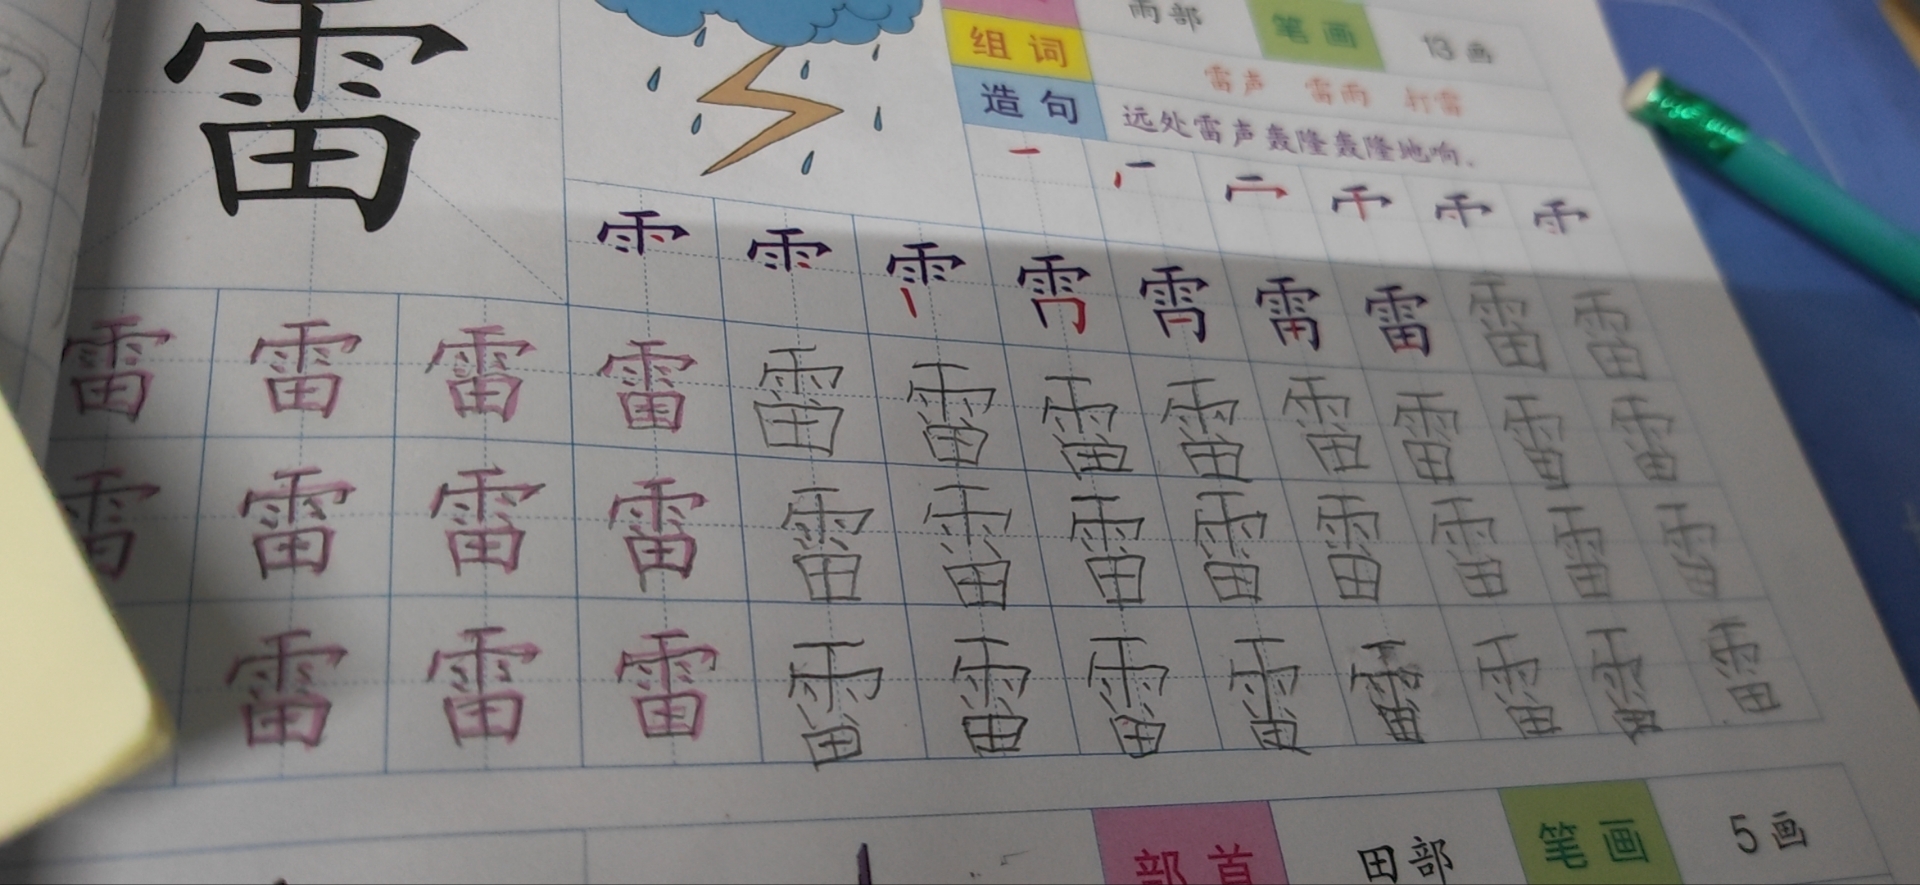 雷
雨部 笔画 13画
组词 雷声 雷雨 打雷
造句 远处雷声轰隆轰隆地响。
雷 雷 雷
雷 雷 雷 雷 雷 雷 雷 雷 雷 雷 雷 雷
雷 雷 雷 雷 雷 雷 雷 雷 雷 雷 雷 雷
雷 雷 雷 雷 雷 雷 雷 雷 雷 雷 雷
部首 田部 笔画 5画